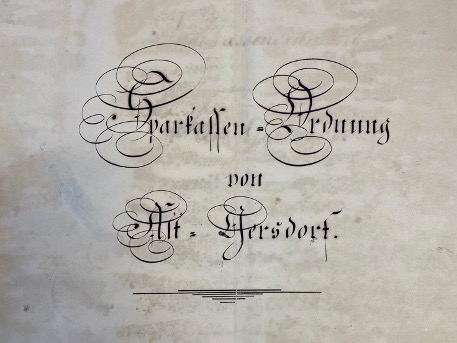 Sparkassen-Ordnung
von
Alt-Gersdorf.